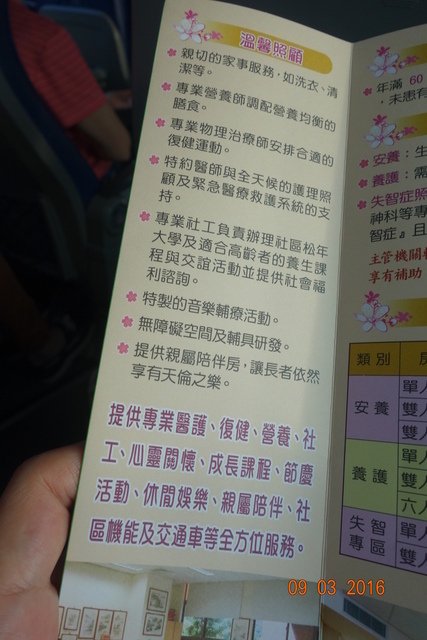 溫馨照顧
親切的家事服務，如洗衣、清
潔等。
專業營養師調配營養均衡的
膳食。
專業物理治療師安排合適的
復健運動。
特約醫師與全天候的護理照
顧及緊急醫療救護系統的支
持。
專業社工負責辦理社區松年
大學及適合高齡者的養生課
程與交誼活動並提供社會福
利諮詢。
特製的音樂輔療活動。
無障礙空間及輔具研發。
提供親屬陪伴房，讓長者依然
享有天倫之樂。
提供專業醫護、復健、營養、社
工、心靈關懷、成長課程、節慶
活動、休閒娛樂、親屬陪伴、社
區機能及交通車等全方位服務。
年滿 60
，未患有
安養：生
養護：需
失智症照
神科等專
智症』且
主管機關
享有補助
類別
安養
單人
雙人
雙人
養護
單人
雙人
六人
失智
專區
單人
雙人
09 03 2016